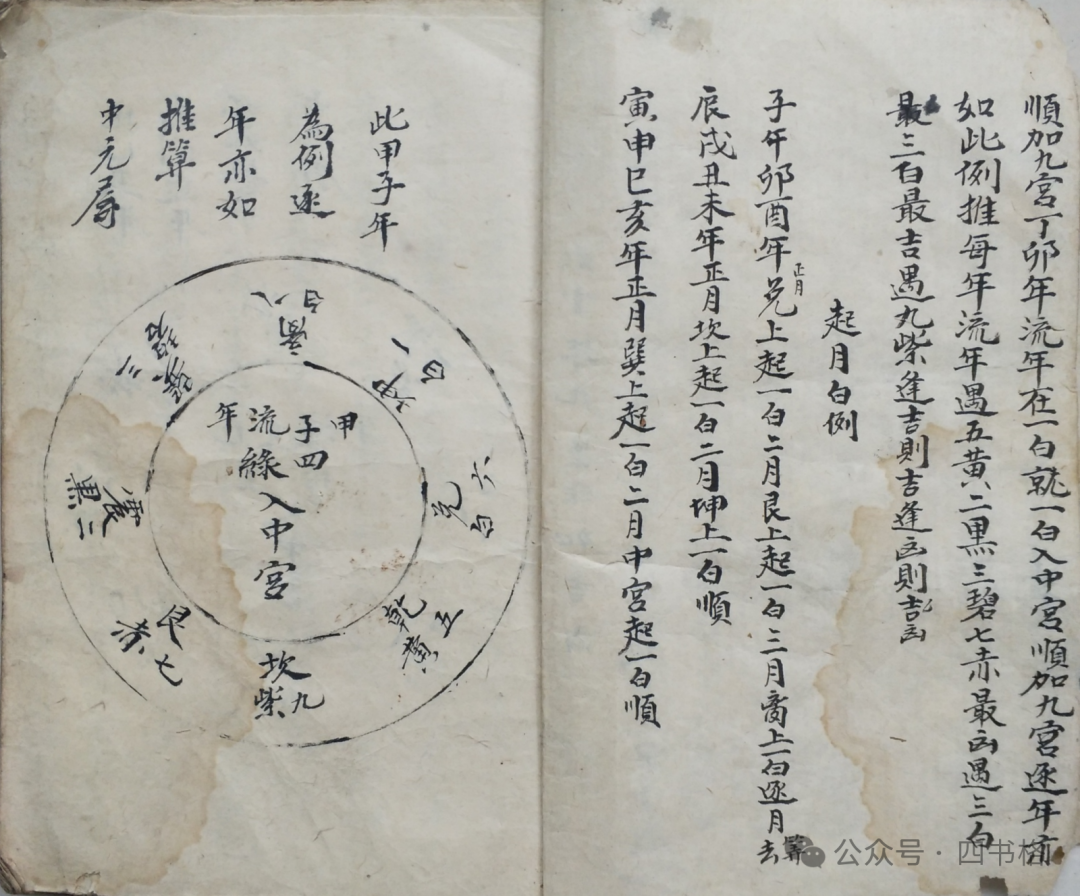 順加九宮丁卯年流年在一白就一白入中宮順加九宮逐年前
如此例推每年流年遇五黄二黑三碧七赤最凶遇三白
最三白最吉遇九紫逢吉則吉逢凶則凶
起月白例
子午卯酉年正月兑上起一白二月艮上起一白三月离上一白逐月去算
辰戌丑未年正月坎上起一白二月坤上一白順
寅申巳亥年正月巽上起一白二月中宮起一白順
此甲子年
為例逐
年亦如
推算
中元唇
甲子年
流
四綠
入中宮
离八白
坤一白
兑六白
乾五黄
坎九紫
艮七赤
震二黑
巽三碧
公众号·四书格